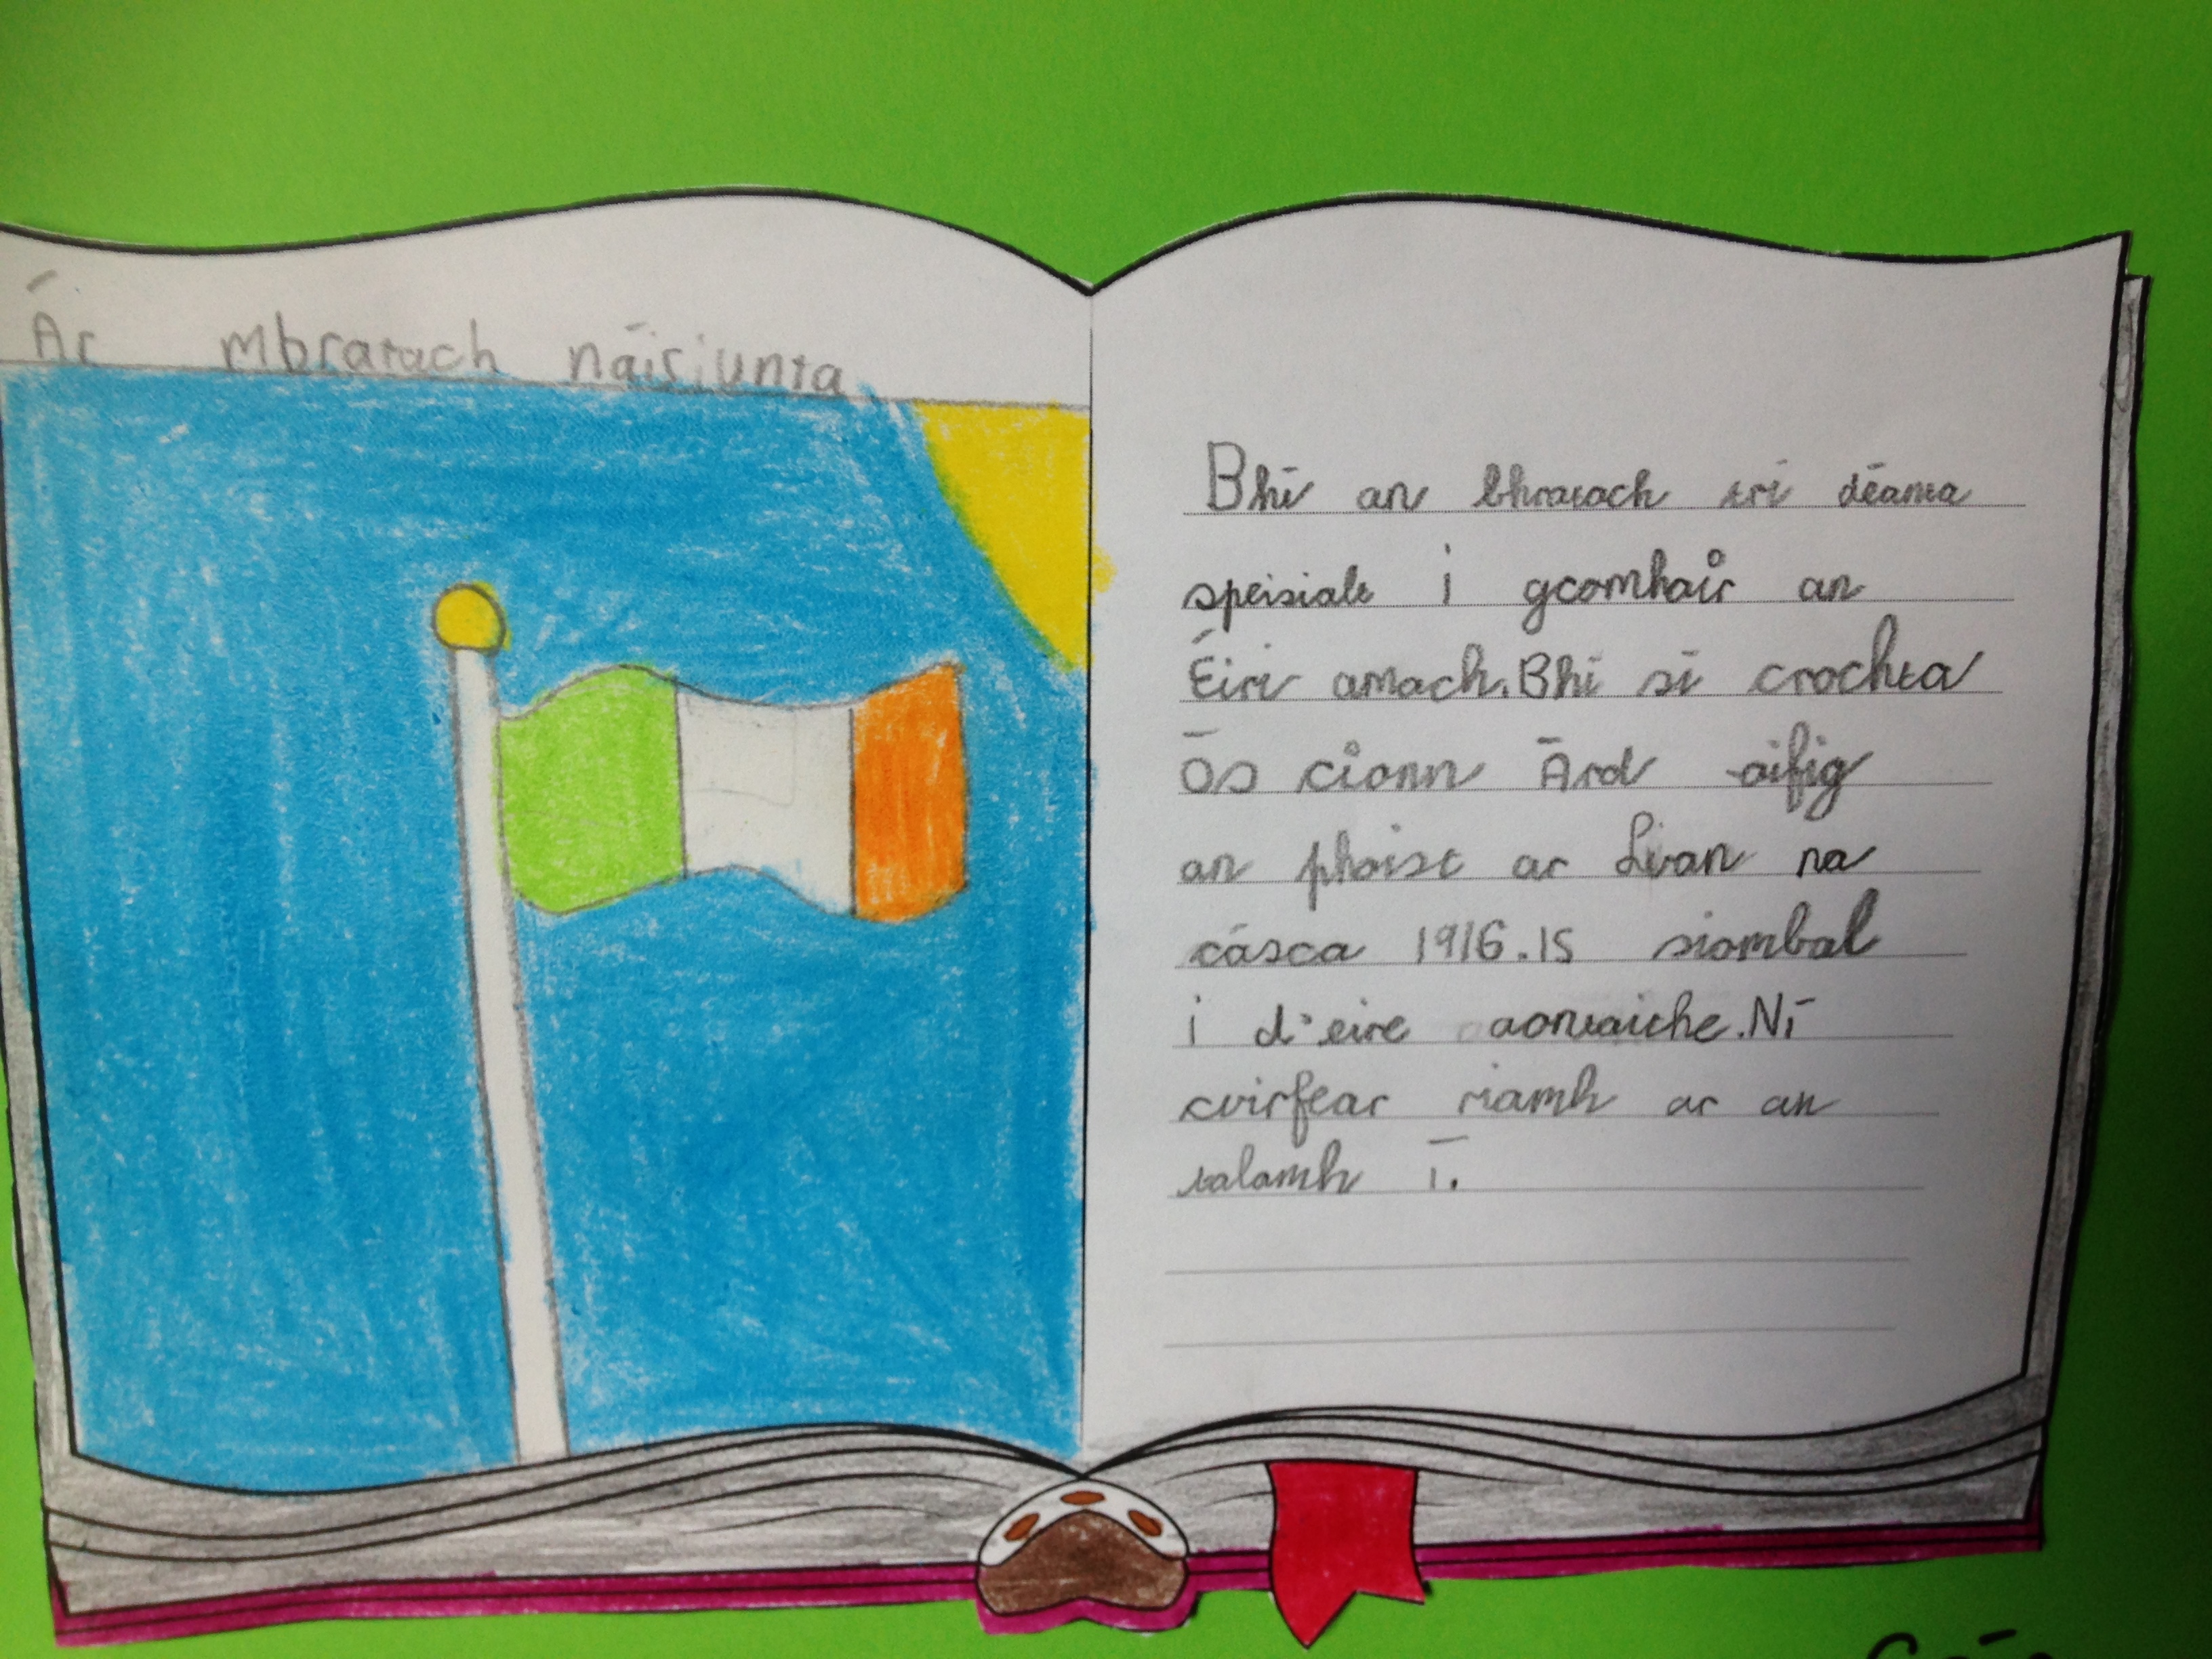 Ár mbratach náisiunta
Bhí an bhratach trí déanta
speisialt i gcomhair an
Éirí amach. Bhí sí crochta
Ós cionn Árd oifig
an phoist ar Luan na
cásca 1916. IS siombal
i d'eire aontaithe. Ní
cuirfear riamh ar an
talamh í.